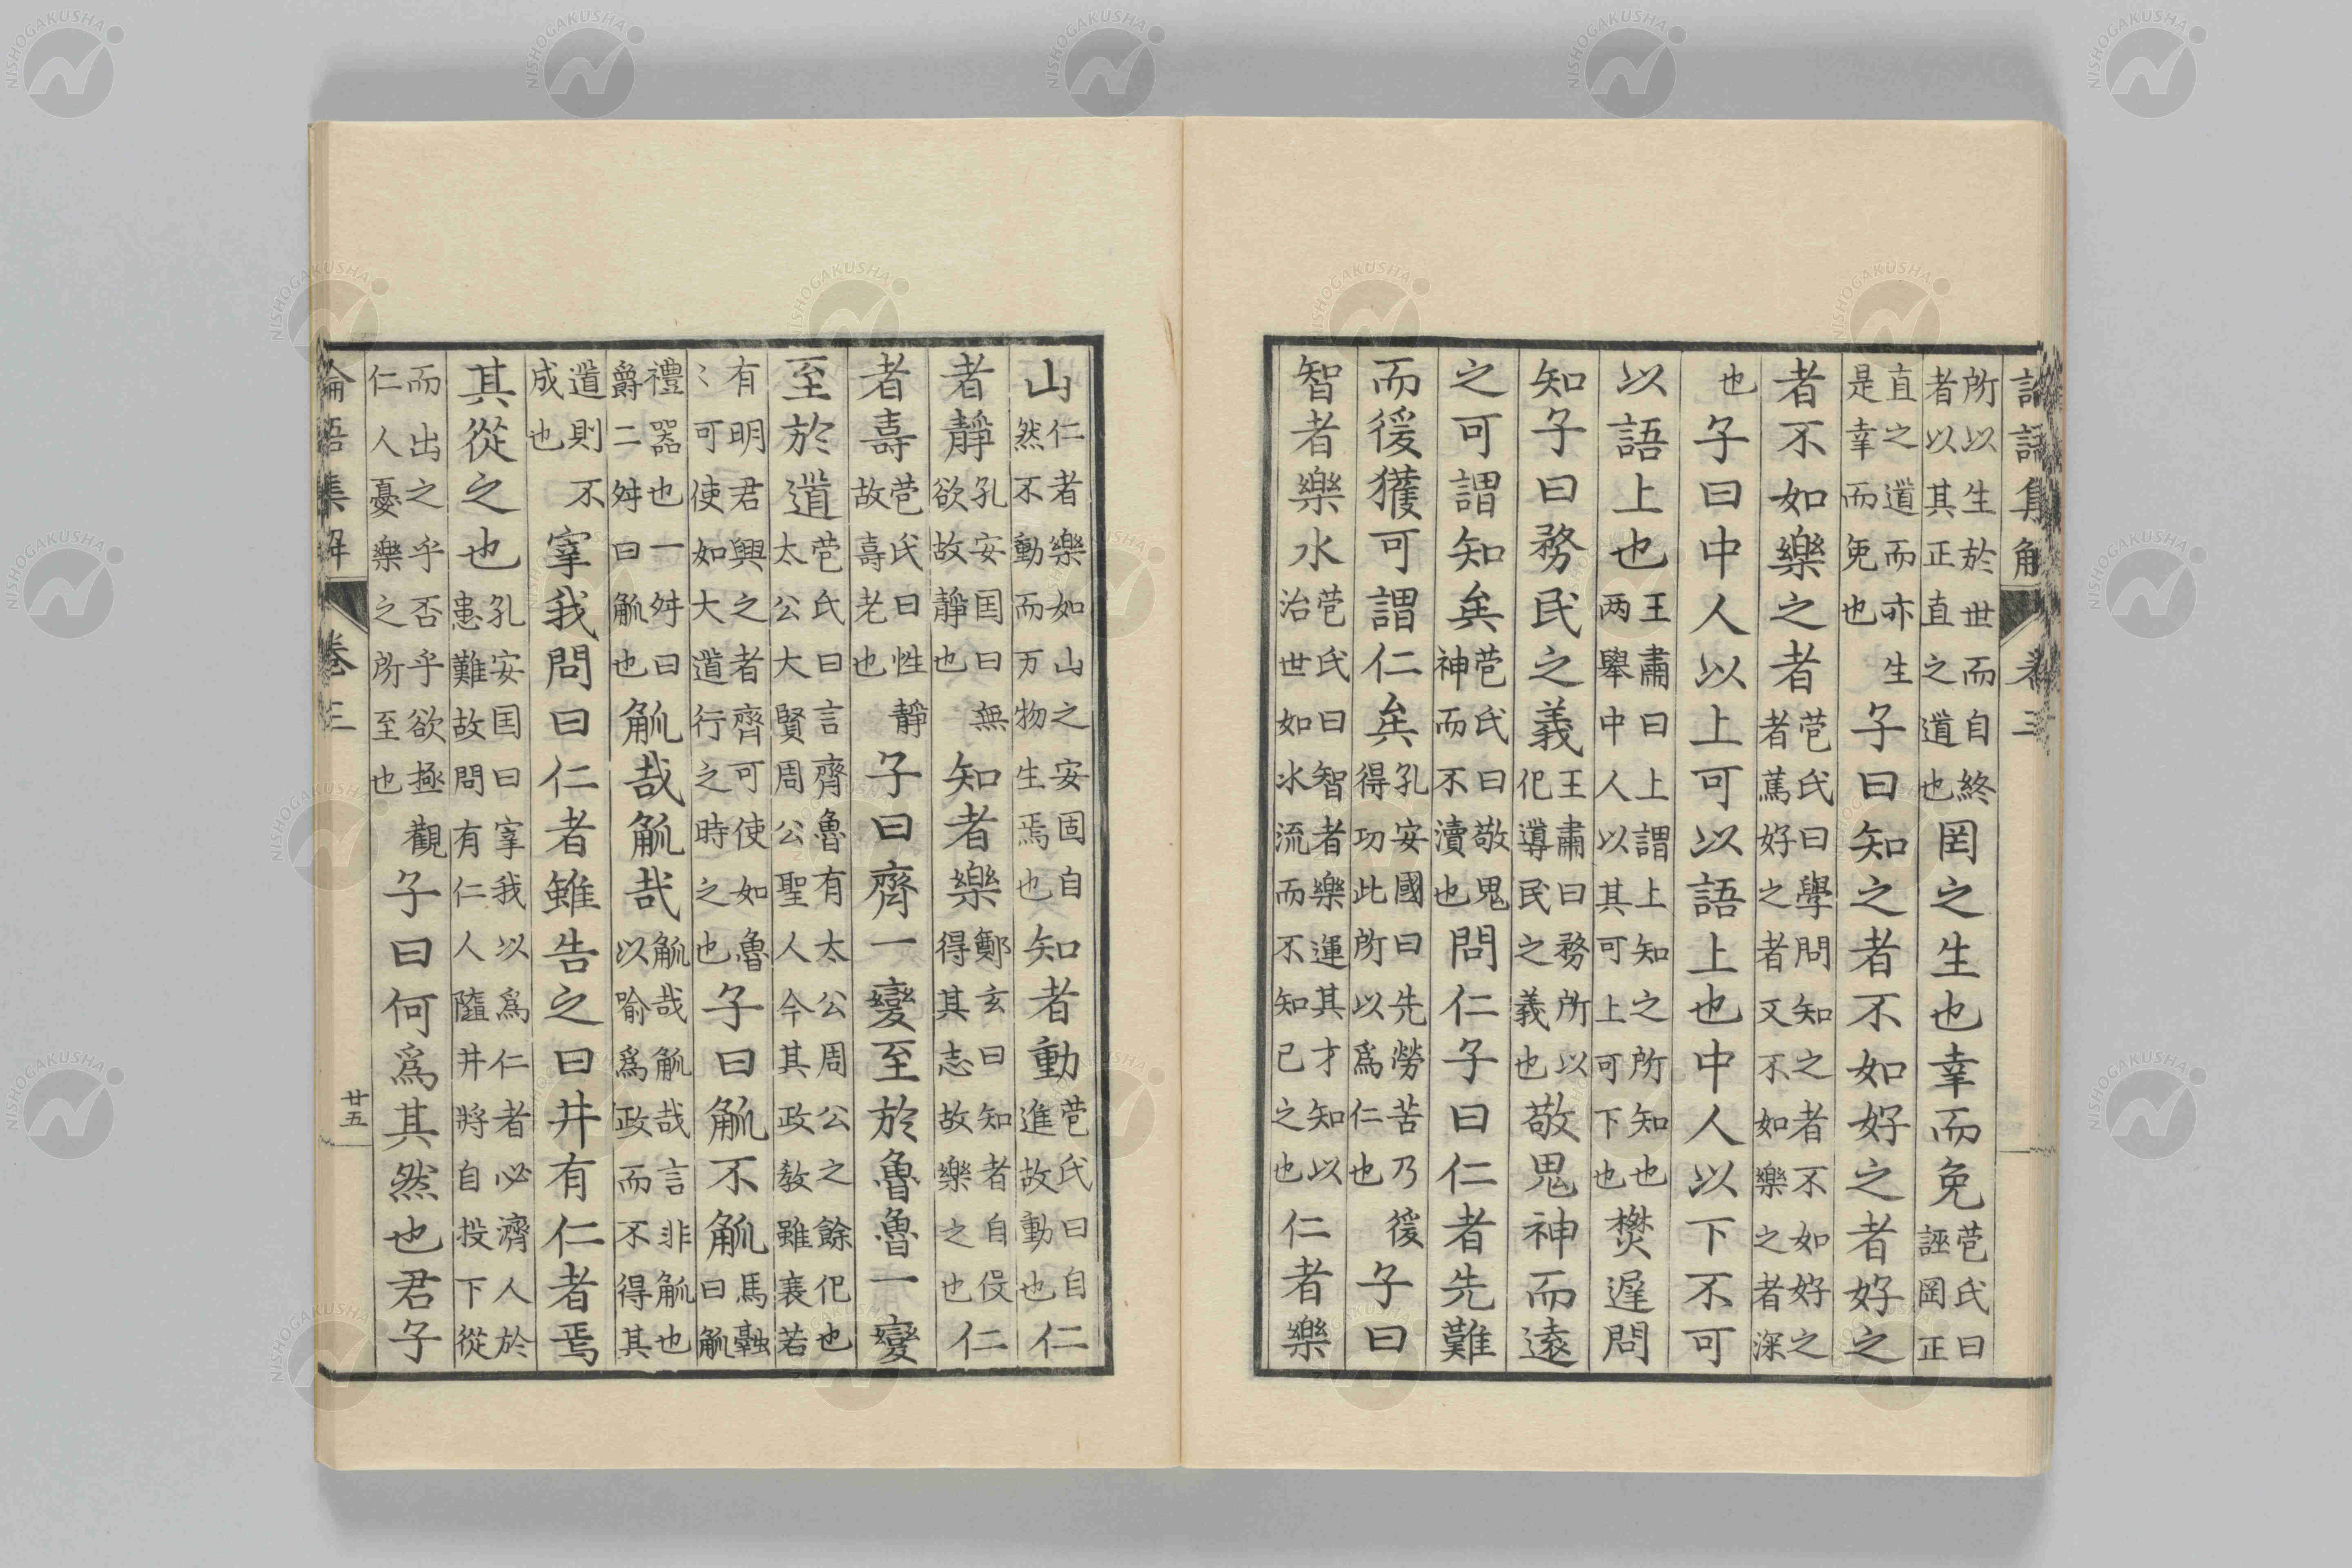 論語集解 卷三
所以生於世而自終者以其正直之道也罔之生也幸而免苞氏曰誣罔正
直之道而亦生是幸而免也子曰知之者不如好之者好之
者不如樂之者苞氏曰學問知之者不如好之者篤好之者又不如樂之者深
也子曰中人以上可以語上也中人以下不可
以語上也王肅曰上謂上知之所知也两舉中人以其可上可下也樊遲問
知子曰務民之義王肅曰務所以化導民之義也敬鬼神而遠
之可謂知矣苞氏曰敬鬼神而不瀆也問仁子曰仁者先難
而後獲可謂仁矣孔安國曰先勞苦乃後得功此所以爲仁也子曰
智者樂水苞氏曰智者樂運其才知以治世如水流而不知已之也仁者樂
山仁者樂如山之安固自然不動而万物生焉也知者動苞氏曰自進故動也仁
者靜孔安国曰無欲故靜也知者樂鄭玄曰知者自役得其志故樂之也仁
者壽苞氏曰性靜故壽老也子曰齊一變至於魯魯一變
至於道苞氏曰言齊魯有太公周公之餘化也太公大賢周公聖人今其政教雖衰若
有明君興之者齊可使如魯〻可使如大道行之時之也子曰觚不觚馬融曰觚
禮器也一升曰爵二升曰觚也觚哉觚哉觚哉觚哉言非觚也以喻爲政而不得其
道則不成也宰我問曰仁者雖告之曰井有仁者焉
其從之也孔安国曰宰我以爲仁者必濟人於患難故問有仁人隨井將自投下從
而出之乎否乎欲極觀仁人憂樂之所至也子曰何爲其然也君子
論語集解 卷三 廿五